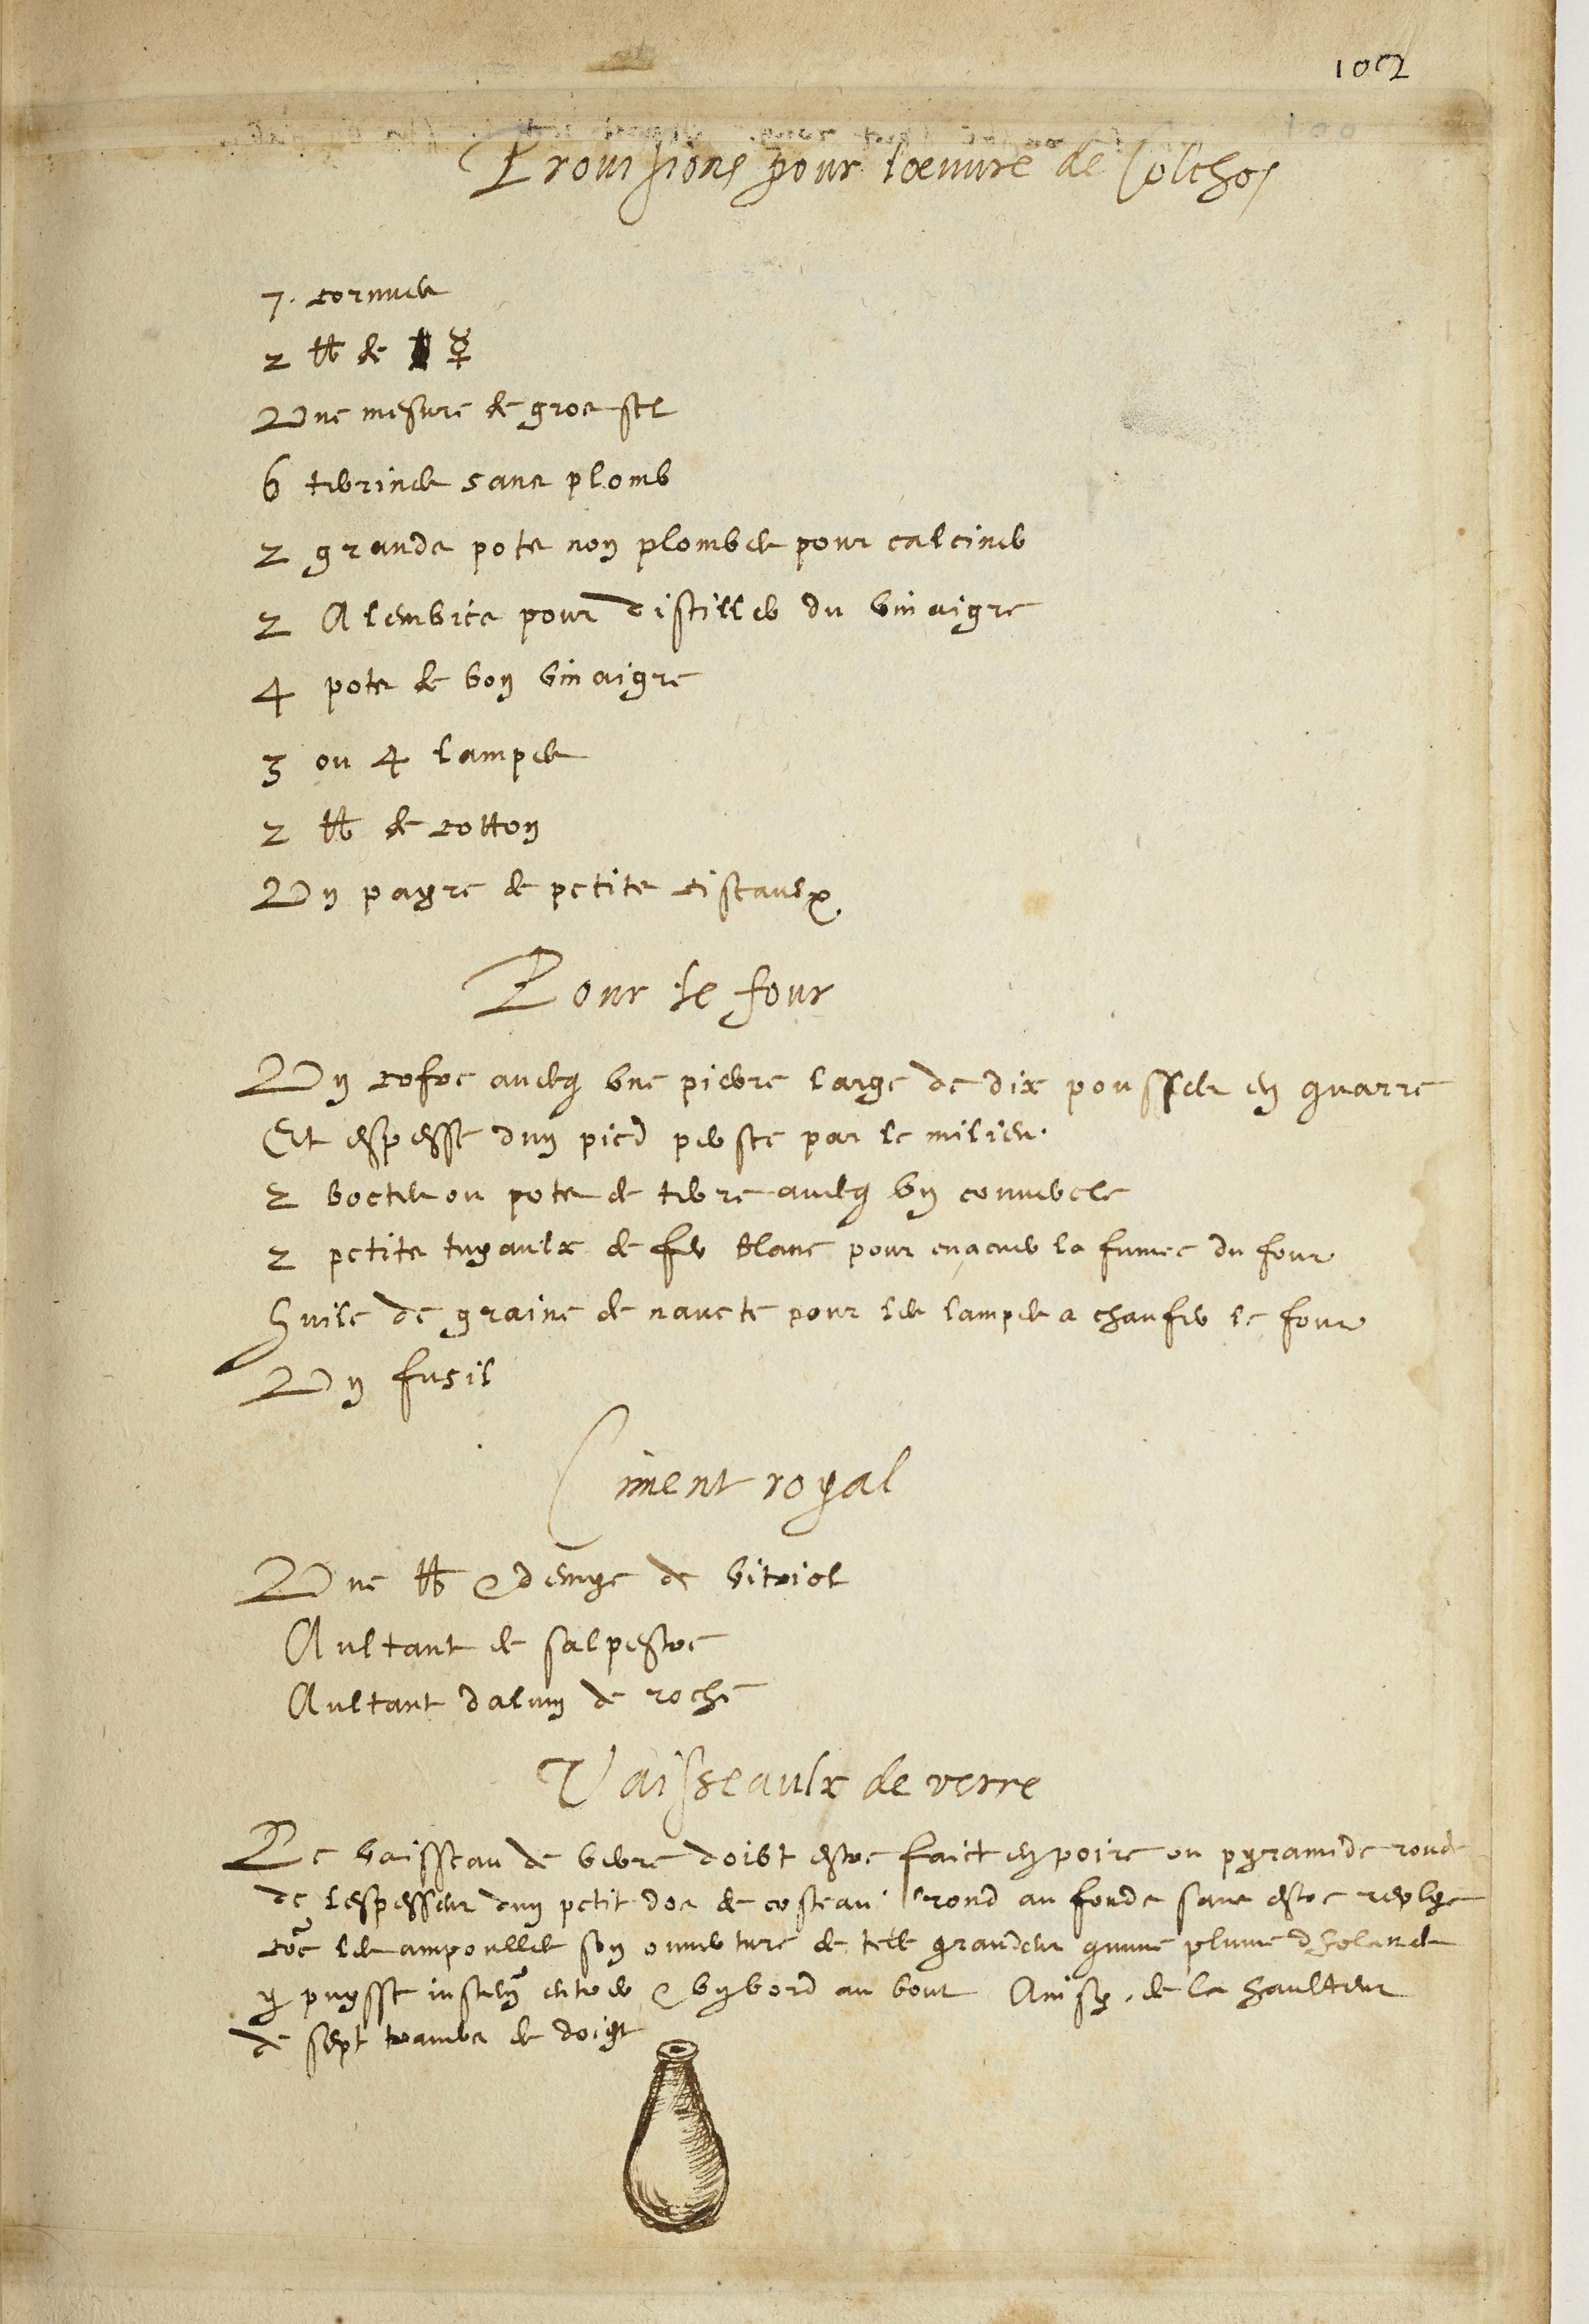 102
Provisions pour lœuvre de Colchos
7. cornues
2 ℔ de ☿
Une mesure de gros sel
6 terrines sans plomb
2 grands pots non plombes pour calciner
2 Alembics pour distiller du vinaigre
4 pots de bon vinaigre
3 ou 4 lampes
2 ℔ de cotton
Un payre de petits ciseaulx
Pour le four
Un cofre avecq une pierre large de dix poulsses en quarre
Et espesse dun pied persee par le milieu.
2 boctes ou pots de terre avecq un couvercle
2 petits tuyaulx de fer blanc pour evacuer la fumee du four
Huile de graine de navete pour les lampes a chaufer le four
Un fusil
Ciment royal
Une ℔ & demye de vitriol
Aultant de salpestre
Aultant dalum de roche
Vaisseaulx de verre
Le vaisseau de verre doibt estre faict en poire ou pyramide ronde
de lespesseur dun petit dos de costeau. rond au fonds sans estre
cõe les ampoulles son ouverture de telle grandeur quune plume dholande
y puysse entrer & un bord au bout Ainsy. de la haulteur
de sept de doigt